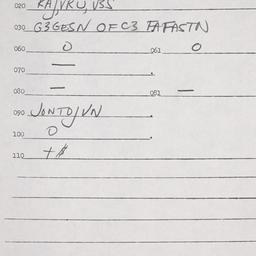 020 KAJVKU, V35
030 G3GESN OFC3 FAFASTN
060 O 061 O
070 — .
080 — 081 —
090 JONTOJVN .
100 O .
110 +$